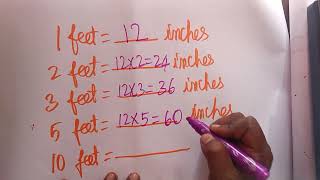 1 feet = 12 inches
2 feet = 12×2=24 inches
3 feet = 12×3=36 inches
5 feet = 12×5=60 inches
10 feet =